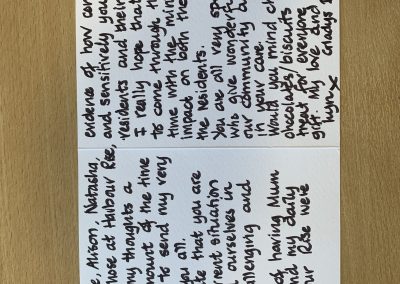 Alison, Natasha,
at Harbour Rise,
my thoughts a
of the time
to send my very
you all.
that you are
situation
ourselves in
and
of having Mum
my daily
Rise were
evidence of how
and sensitively you
residents and their
I really hope that
to come through th
time with the min
impact on both the
the residents.
You are all very sp
who give wonderf
our community
in your care.
Would you mind
chocolates/biscuits
treat for everyone
gift. My love and
Gladys
Lynn x